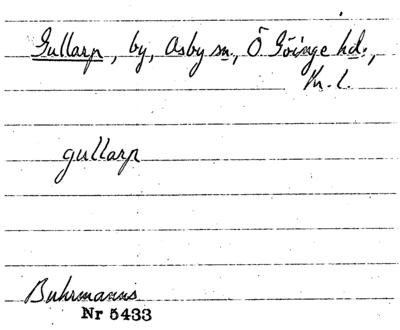 Gullarp, by, Osby sn., Ö Göinge hd.,
Kr. l.
gullarp
Buhrmanns
Nr 5433